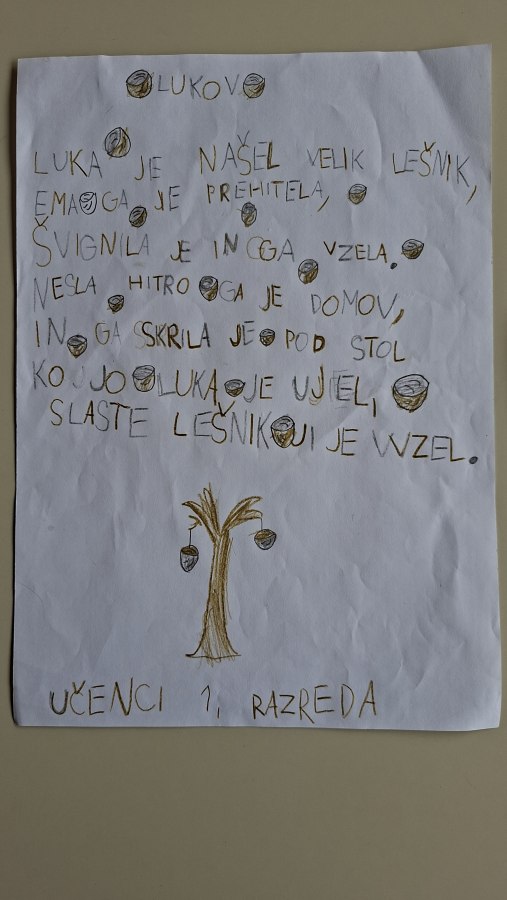 LUKOVO
LUKA JE NAŠEL VELIK LEŠNIK,
EMA GA JE PREHITELA,
ŠVIGNILA JE IN GA VZELA.
NESLA HITRO GA JE DOMOV,
IN GA SSKRILA JE POD STOL
KO JO LUKA JE UJEL,
SLASTE LEŠNIK JI JE VVZEL.
UČENCI 1, RAZREDA